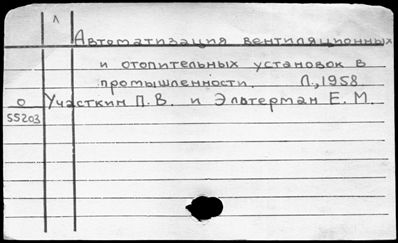 Л
Автоматизация вентиляционных
и отопительных установок в
промышленности. Л., 1958
О Участкин П.В. и Эльтерман Е.М.
55203